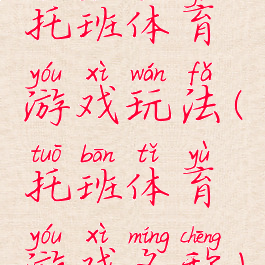 托班体育
yóu xì wán fǎ
游戏玩法(
tuō bān tǐ yù
托班体育
yóu xì míng chēng
游戏名称)